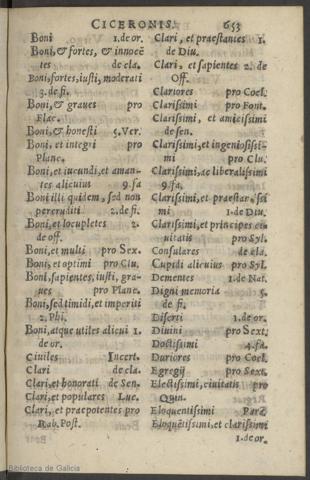 CICERONIS. 653
Boni 1. de or.
Boni, & fortes, & innocē
tes de cla.
Boni, fortes, iusti, moderati
3. de fi.
Boni, & graues pro
Flac.
Boni, & honesti 5. Ver.
Boni, et integri pro
Planc.
Boni, et iucundi, et aman-
tes alicuius 9. fa
Boni illi quidem, sed non
pereruditi 2. de fi.
Boni, et locupletes 2.
de off.
Boni, et multi pro Sex.
Boni, et optimi pro Clu.
Boni, sapientes, iusti, gra-
ues pro Planc.
Boni, sed timidi, et imperiti
2. Phi.
Boni, atque utiles alicui 1.
de or.
Ciuiles Incert.
Clari de cla.
Clari, et honorati de Sen.
Clari, et populares Luc.
Clari, et praepotentes pro
Rab. Post.
Clari, et praestantes 1.
de Diu.
Clari, et sapientes 2. de
Off.
Clariores pro Coel.
Clarissimi pro Font.
Clarissimi, et amicissimi
de sen.
Clarissimi, et ingeniosissi-
mi pro Clu.
Clarissimi, ac liberalissimi
9. fa.
Clarissimi, et praestantissi
mi 1. de Diu.
Clarissimi, et principes ci-
uitatis pro Syl.
Consulares de cla.
Cupidi alicuius pro Syl.
Dementes 1. de Nat.
Digni memoria 5.
de fi.
Diserti 1. de or.
Diuini pro Sext.
Doctissimi 4. fa.
Duriores pro Coel.
Egregij pro Sext.
Electissimi, ciuitatis pro
Quin.
Eloquentissimi Para.
Eloquētissimi, et clarissimi
1. de or.
Biblioteca de Galicia